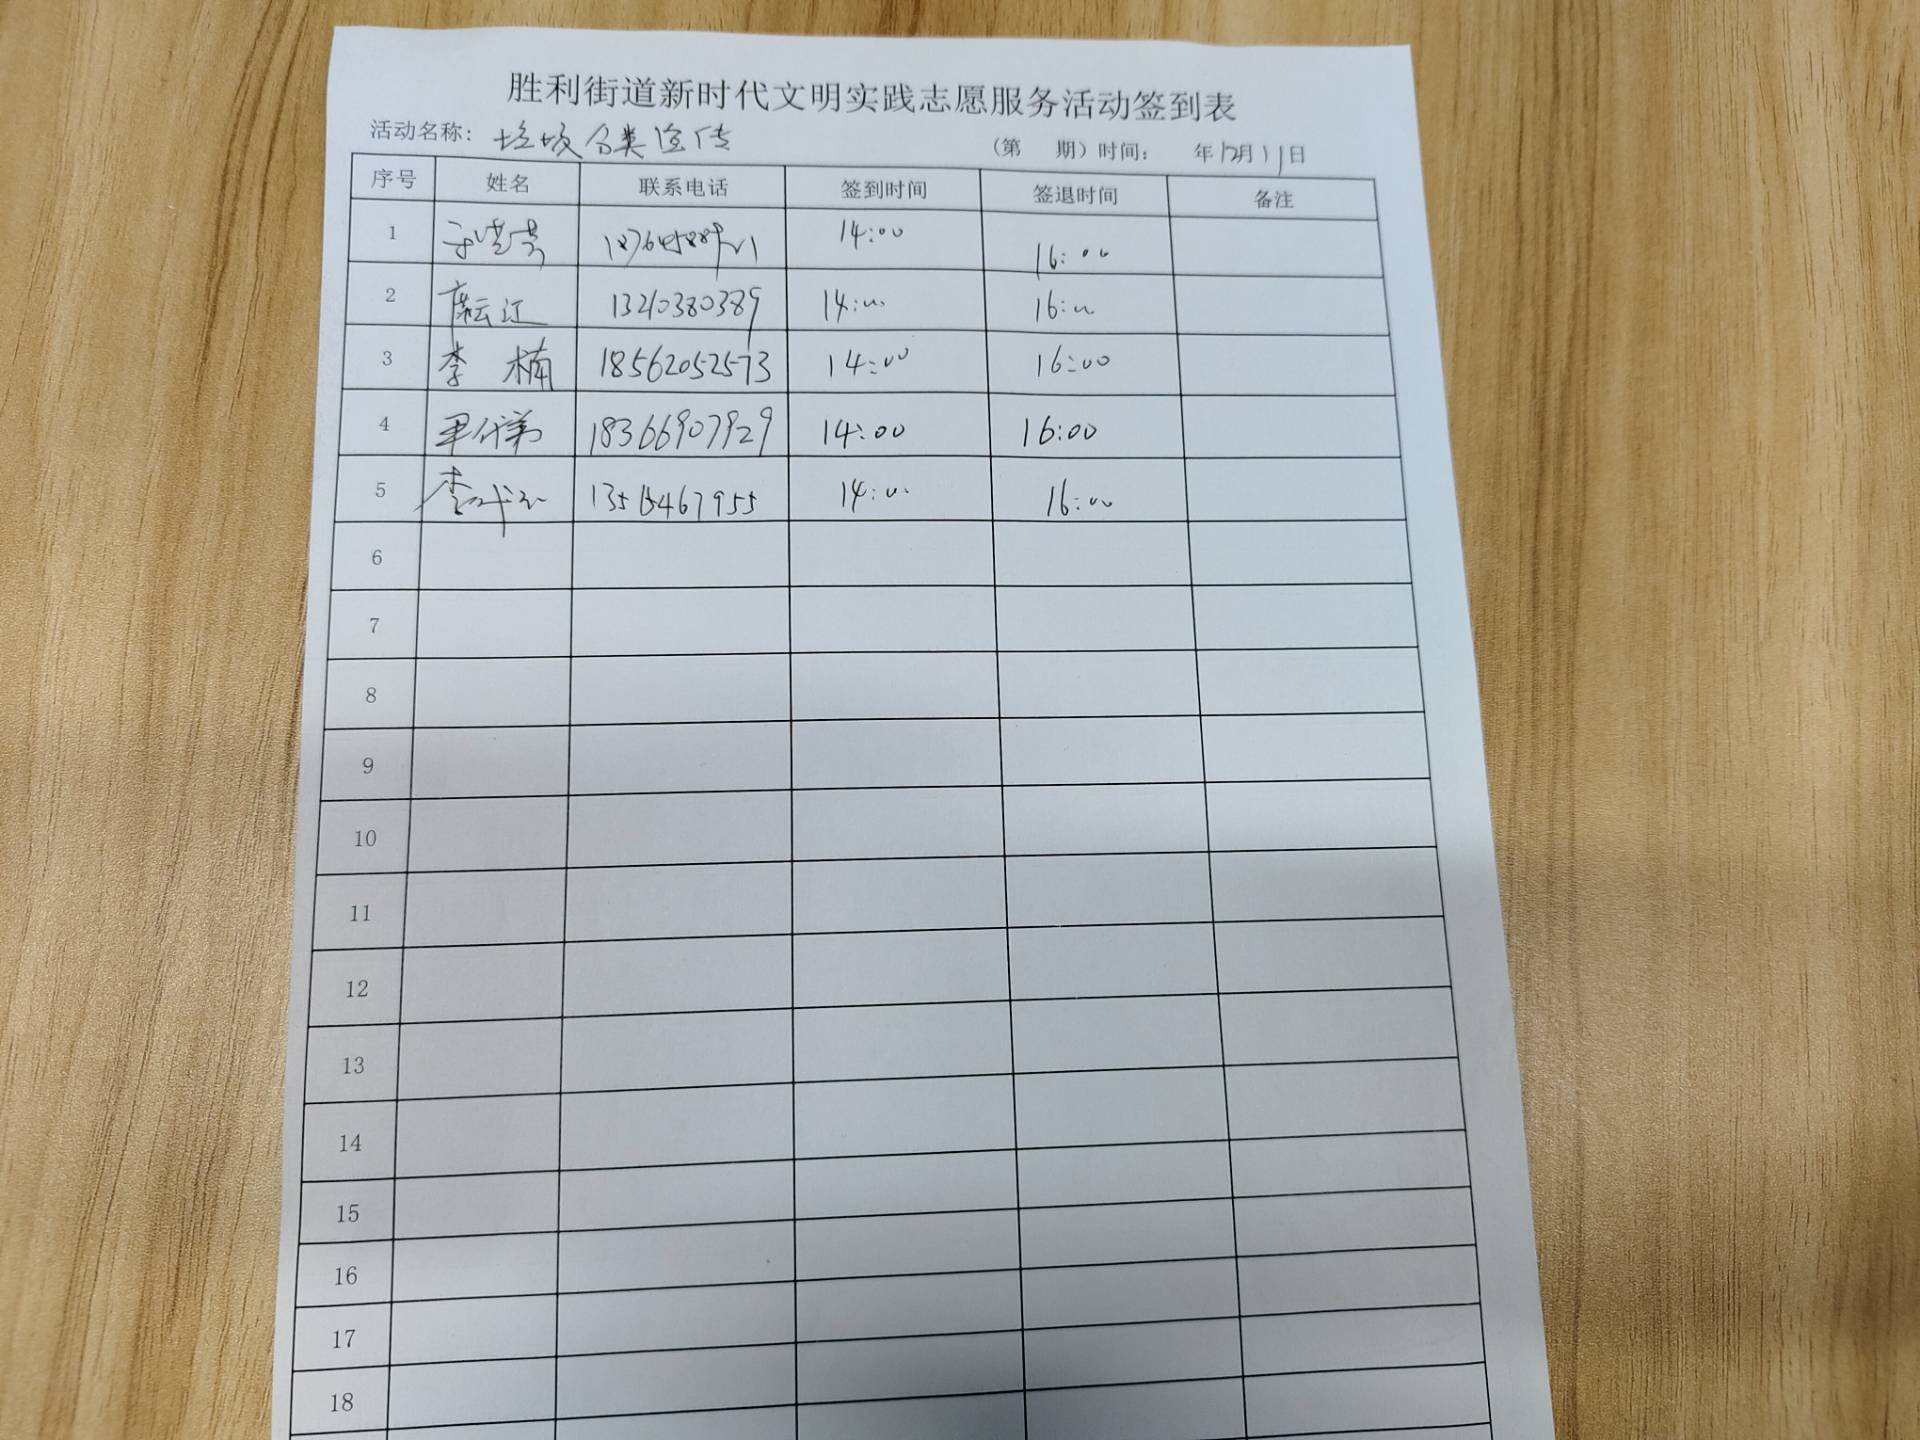 胜利街道新时代文明实践志愿服务活动签到表
活动名称: 垃圾分类宣传 (第 期)时间: 年12月11日
序号 姓名 联系电话 签到时间 签退时间 备注
1 14:00 16:00
2 13210380389 14:00 16:00
3 李楠 18562052573 14:00 16:00
4 18366907929 14:00 16:00
5 李 13515467955 14:00 16:00
6
7
8
9
10
11
12
13
14
15
16
17
18